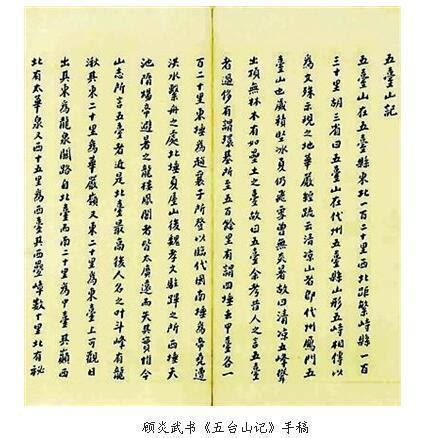 五臺山記
五臺山在五臺縣東北一百二十里西北距繁峙縣一百
三十里胡三省曰五臺山在代州五臺縣山形五峙相傳以
為文殊示現之地華嚴經疏云清涼山者即代州鴈門五
臺山也歲積堅冰夏仍飛雪曾無炎暑故曰清涼五峰聳
出頂無林木有如壘土之臺故曰五臺余考昔人之言五臺
者過侈有謂環基所至五百餘里有謂四埵去中臺各一
百二十里東埵為趙襄子所登以臨代國南埵為帝堯遭
洪水繫舟之處北埵夏屋山後魏孝文駐蹕之所西埵天
池隋煬帝避暑之龍樓鳳閣者皆太廣遠而失其實惟今
山志所言五臺者近是北臺最高後人名之叶斗峰有龍
湫其東二十里為華嚴嶺又東二十里為東臺上可觀日
出其東為龍泉關路自北臺而南二十里為中臺其巔西
北有太華泉又西十五里為西臺其西疊嶂數十里北有秘
顾炎武书《五台山记》手稿